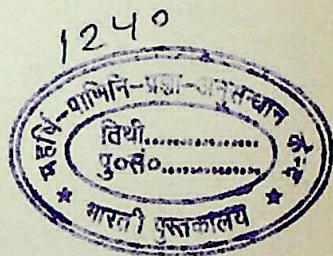 1240
महर्षि-पाणिनि-प्रज्ञा-अनुसन्धान केन्द्र
तिथी..................
पु०सं०..................
★ भारती पुस्तकालय ★